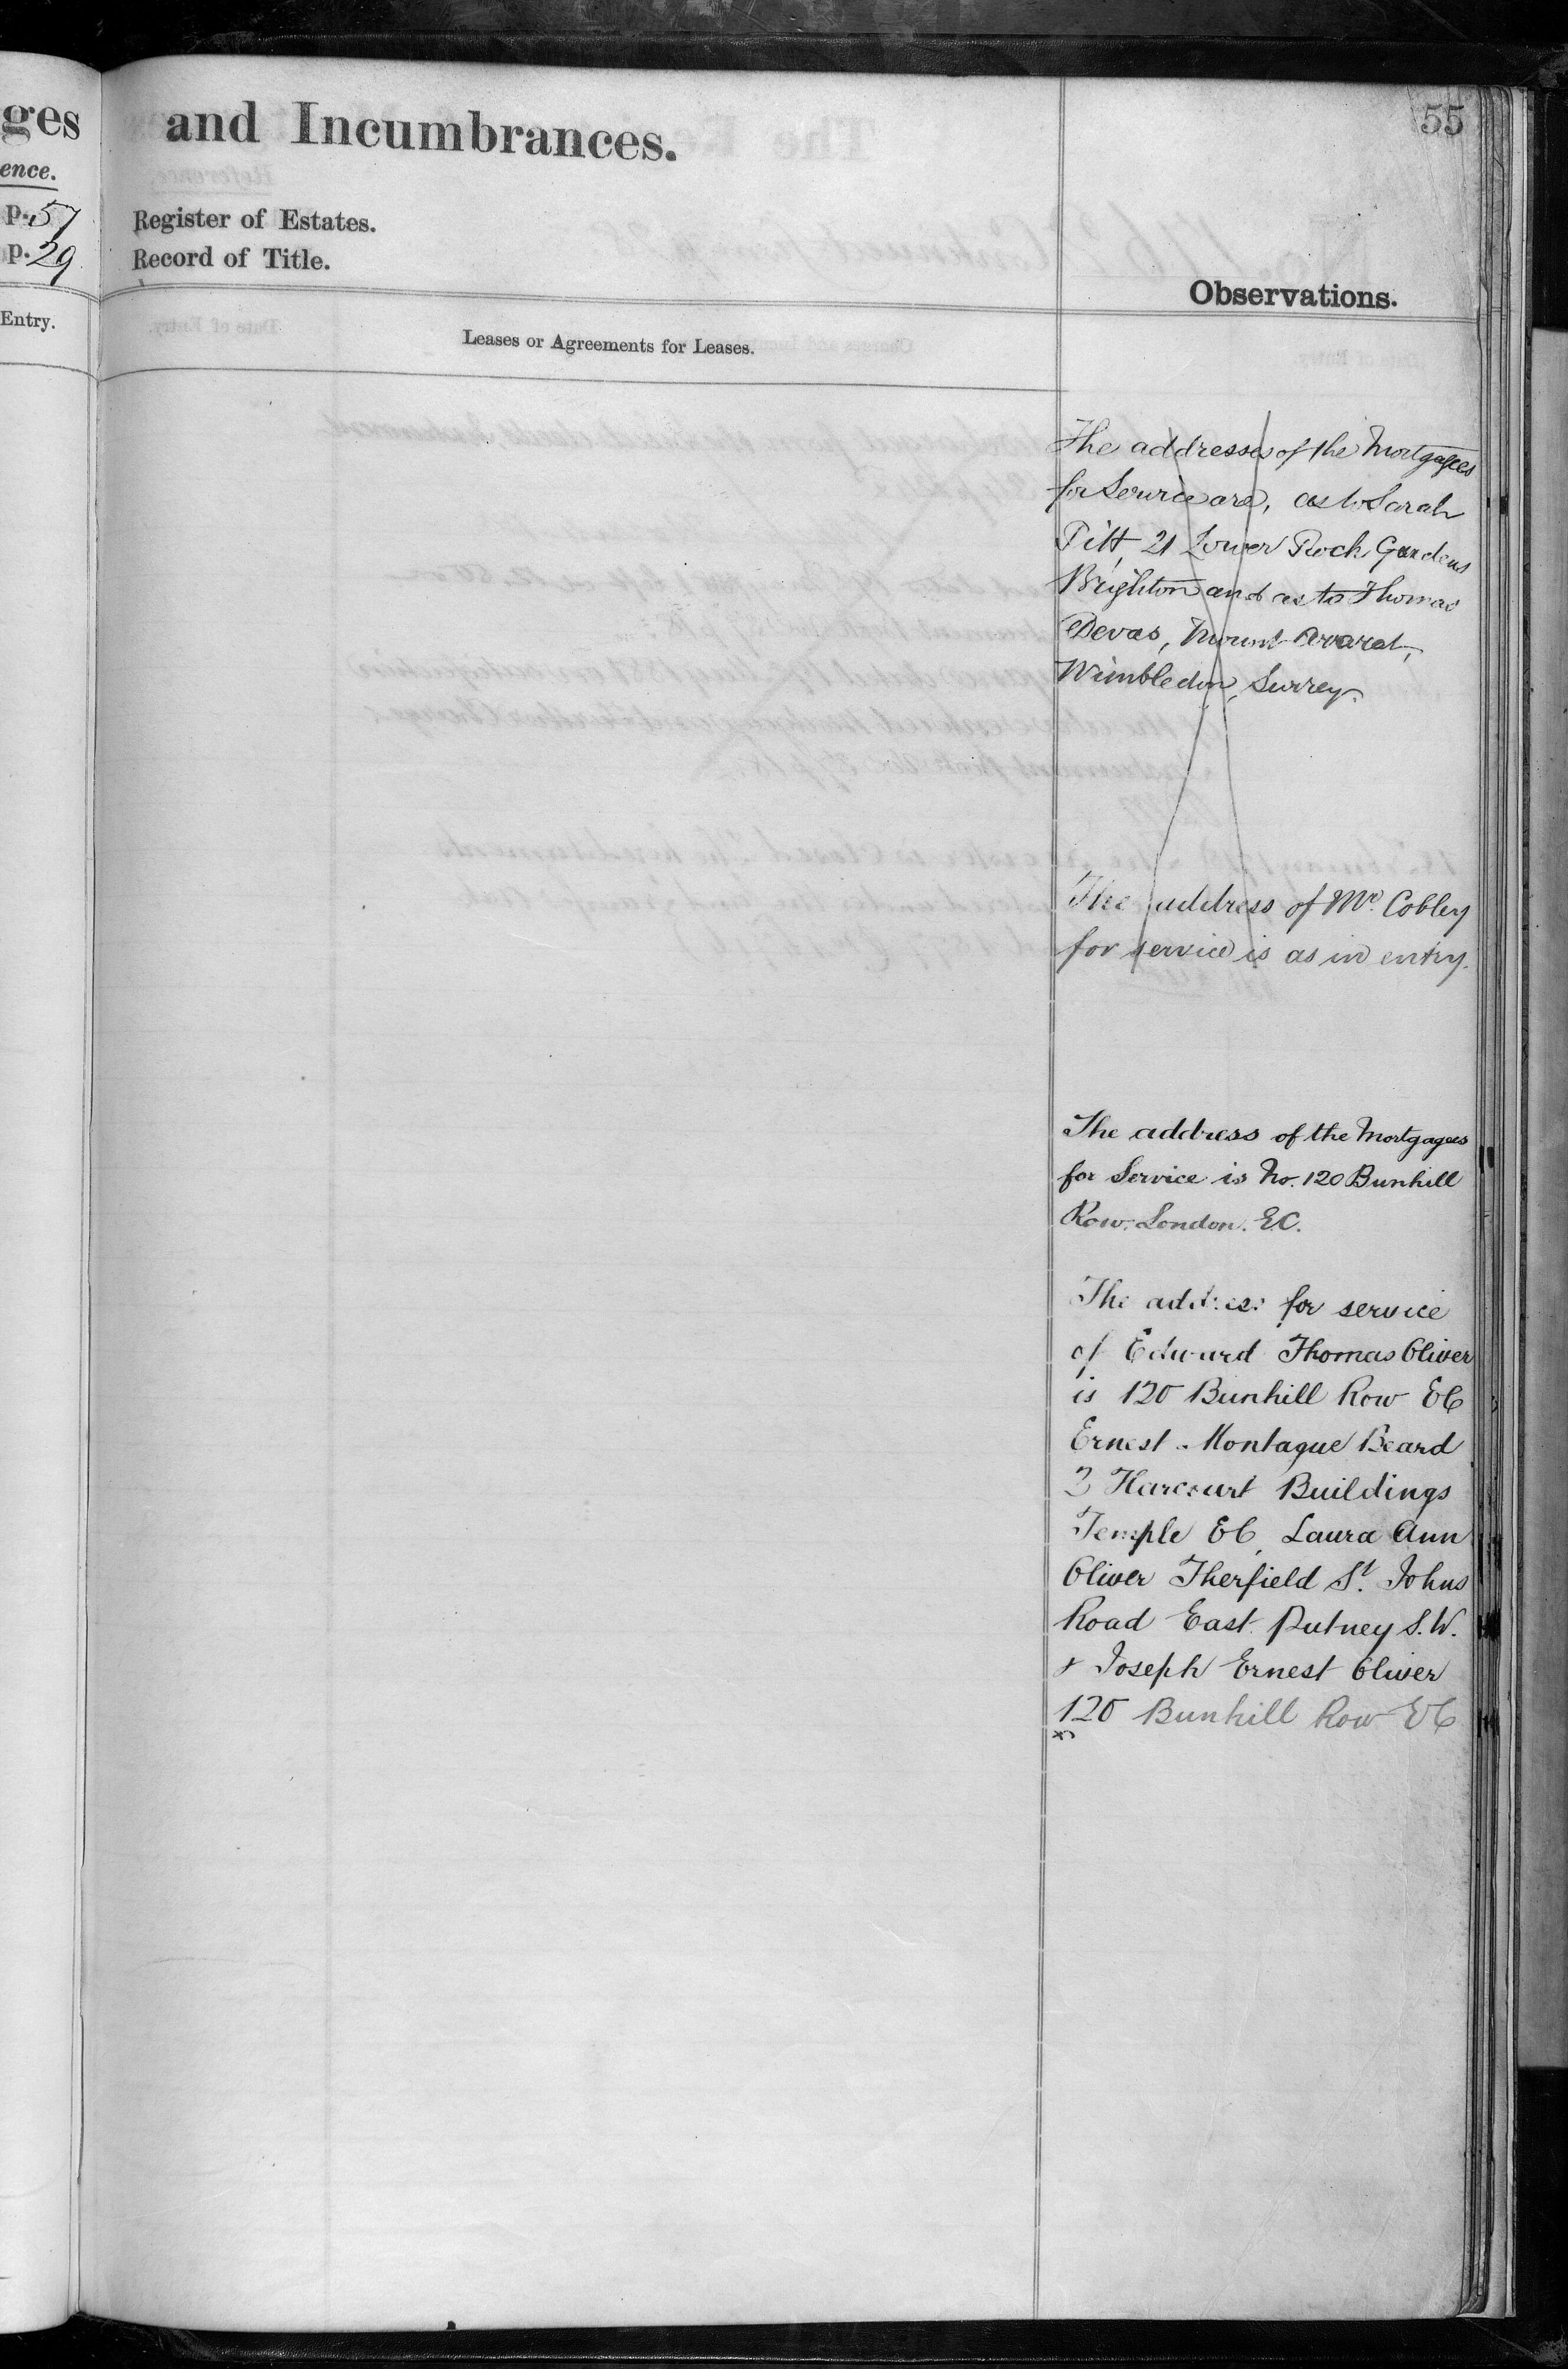 55
ges
and Incumbrances.
ence.
p. 57
Register of Estates.
p. 29
Record of Title.
Observations.
Entry.
Leases or Agreements for Leases.
The addresses of the Mortgagees
for Service are, as to Sarah
Pitt, 21 Lower Rock Gardens
Brighton and as to Thomas
Devas, Mount Ararat,
Wimbledon, Surrey.
The address of Mr. Cobley
for service is as in entry.
The address of the Mortgagees
for Service is No. 120 Bunhill
Row. London. E.C.
The address for service
of Edward Thomas Oliver
is 120 Bunhill Row EC
Ernest Montague Beard
3 Harcourt Buildings
Temple EC, Laura Ann
Oliver Therfield St. Johns
Road East Putney S.W.
& Joseph Ernest Oliver
120 Bunhill Row EC